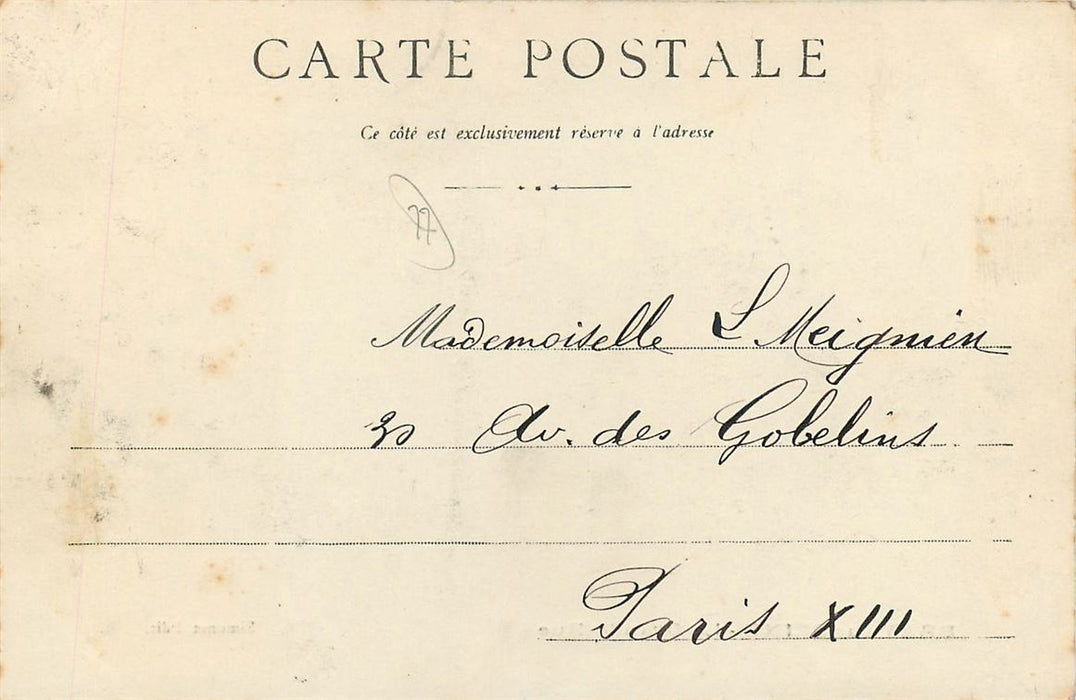 CARTE POSTALE
Ce côté est exclusivement réservé à l'adresse
77
Mademoiselle L Meignien
30 Av. des Gobelins
Paris XIII